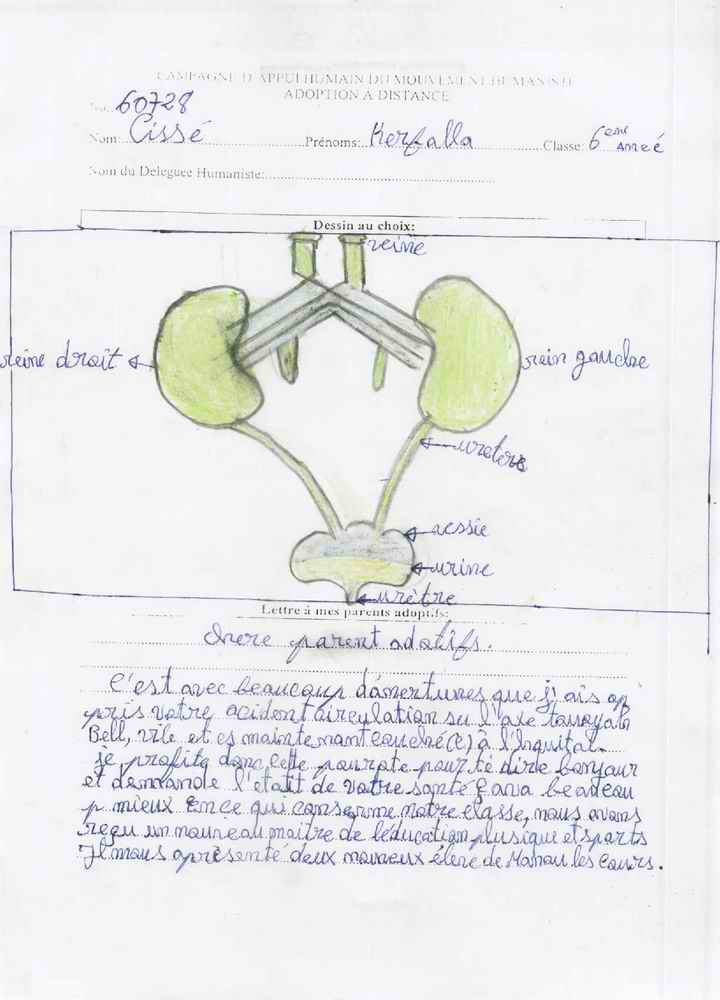 CAMPAGNE D'APPUI HUMAIN DU MOUVEMENT HUMANISTE
ADOPTION A DISTANCE
60728
Nom: Cissé Prénoms: Kerfalla Classe: 6ème Anneé
Nom du Deleguee Humaniste:
Dessin au choix:
veine
reine droit
rein gauche
ureters
vessie
urine
urètre
Lettre à mes parents adoptifs:
chere parent adotifs.
C'est avec beaucoup d'amertumes que j'ais ap
pris votre acident circulation su l'axe
Bell, vile et es maintenant couché(e) à l'hopital.
je profite dans cette pour te dire bonjour
et demande l'étatit de votre santé ça va beaucou
p mieux Ence qui conserne notre classe, nous avons
reçu un nouveau maitre de l'éducation plusique et sparts
Il nous apresenté deux nouveux élere de les cours.